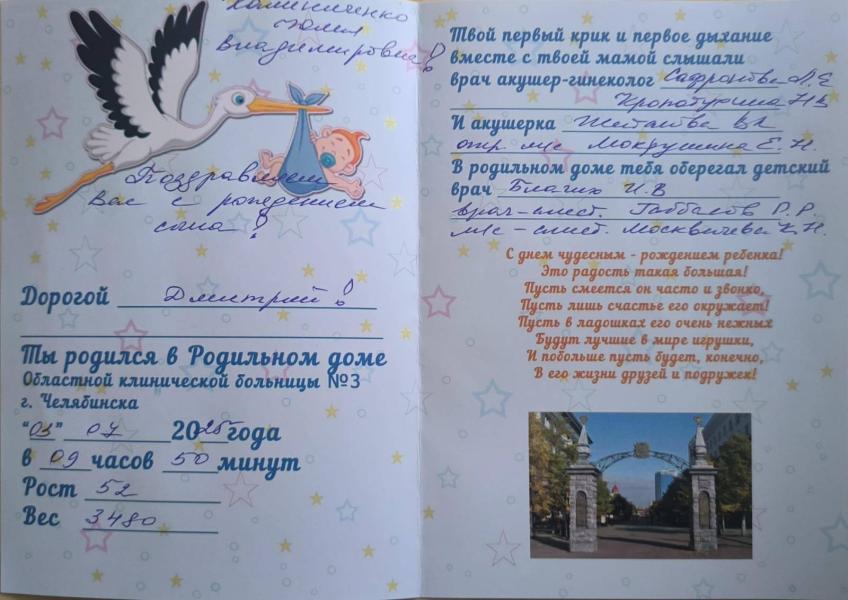 Юлия
Владимировна!
Поздравляем
Вас с рождением
сына!
Дорогой Дмитрий!
Ты родился в Родильном доме
Областной клинической больницы №3
г. Челябинска
"03" 07 2025 года
в 09 часов 50 минут
Рост 52
Вес 3480
Твой первый крик и первое дыхание
вместе с твоей мамой слышали
врач акушер-гинеколог Сафронова Л.Е
Кропотухина Н В
И акушерка
опер м/с Мокрушина Е.Н.
В родильном доме тебя оберегал детский
врач Благих И.В
врач-анест. Р.Р
м/с-анест. Москвичева К.Н.
С днем чудесным - рождением ребенка!
Это радость такая большая!
Пусть смеется он часто и звонко,
Пусть лишь счастье его окружает!
Пусть в ладошках его очень нежных
Будут лучшие в мире игрушки,
И побольше пусть будет, конечно,
В его жизни друзей и подружек!